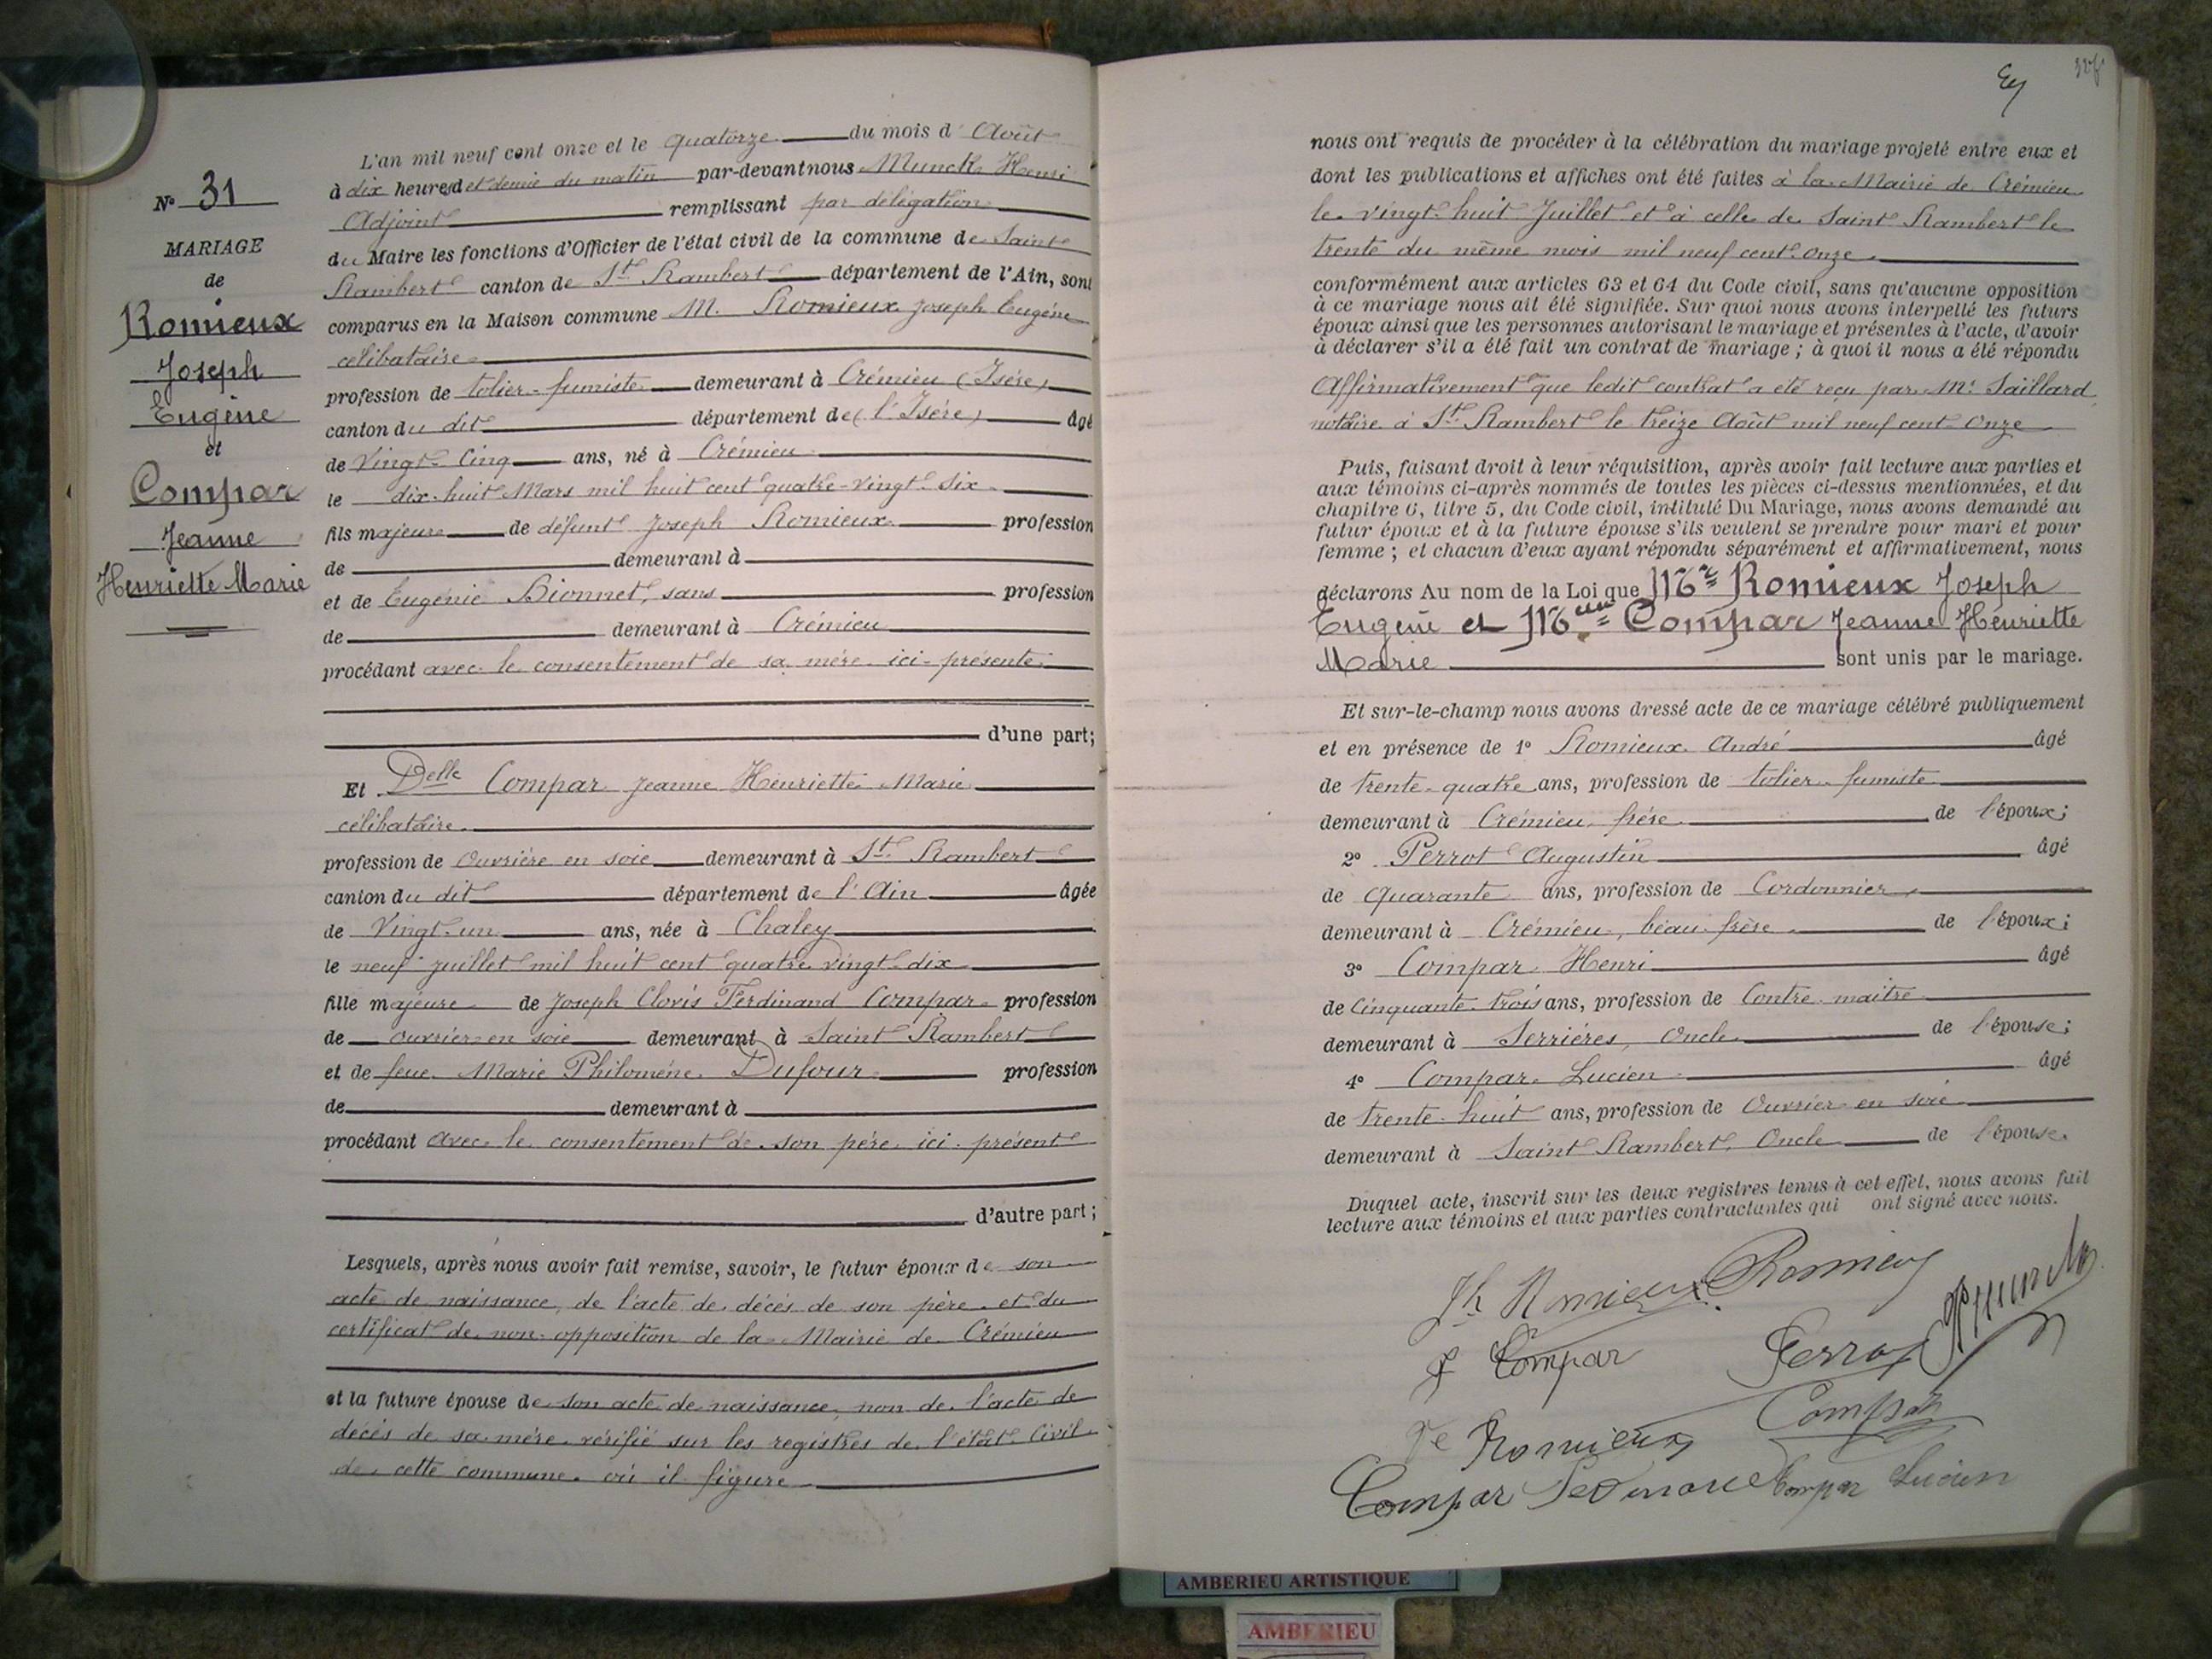 N° 31
MARIAGE
de
Romieux
Joseph
Eugène
et
Compar
Jeanne
Henriette Marie
L'an mil neuf cent onze et le quatorze du mois d'Août
à dix heures et demie du matin par-devant nous Munck Henri
Adjoint remplissant par délégation
du Maire les fonctions d'Officier de l'état civil de la commune de Saint
Rambert canton de St Rambert département de l'Ain, sont
comparus en la Maison commune M. Romieux Joseph Eugène
célibataire
profession de tolier-fumiste demeurant à Crémieu (Isère)
canton du dit département de (l'Isère) âgé
de Vingt-Cinq ans, né à Crémieu
le dix-huit Mars mil huit cent quatre-vingt-six
fils majeur de défunt Joseph Romieux profession
de demeurant à
et de Eugénie Bionnet, sans profession
de demeurant à Crémieu
procédant avec le consentement de sa mère ici-présente
d'une part;
Et Delle Compar Jeanne Henriette Marie
célibataire
profession de Ouvrière en soie demeurant à St Rambert
canton du dit département de l'Ain âgée
de Vingt-un ans, née à Chaley
le neuf juillet mil huit cent quatre vingt-dix
fille majeure de Joseph Clovis Ferdinand Compar profession
de ouvrier en soie demeurant à Saint Rambert
et de feue Marie Philomène Dufour profession
de demeurant à
procédant avec le consentement de son père ici présent
d'autre part;
Lesquels, après nous avoir fait remise, savoir, le futur époux de son
acte de naissance, de l'acte de décès de son père et du
certificat de non-opposition de la Mairie de Crémieu
et la future épouse de son acte de naissance, non de l'acte de
décès de sa mère vérifié sur les registres de l'état Civil
de cette commune où il figure
nous ont requis de procéder à la célébration du mariage projeté entre eux et
dont les publications et affiches ont été faites à la Mairie de Crémieu
le vingt-huit Juillet et à celle de Saint Rambert le
trente du même mois mil neuf cent onze
conformément aux articles 63 et 64 du Code civil, sans qu'aucune opposition
à ce mariage nous ait été signifiée. Sur quoi nous avons interpellé les futurs
époux ainsi que les personnes autorisant le mariage et présentes à l'acte, d'avoir
à déclarer s'il a été fait un contrat de mariage; à quoi il nous a été répondu
Affirmativement que ledit contrat a été reçu par Me Saillard
notaire à St Rambert le treize Août mil neuf cent Onze
Puis, faisant droit à leur réquisition, après avoir fait lecture aux parties et
aux témoins ci-après nommés de toutes les pièces ci-dessus mentionnées, et du
chapitre 6, titre 5, du Code civil, intitulé Du Mariage, nous avons demandé au
futur époux et à la future épouse s'ils veulent se prendre pour mari et pour
femme; et chacun d'eux ayant répondu séparément et affirmativement, nous
déclarons Au nom de la Loi que Mr Romieux Joseph
Eugène et Melle Compar Jeanne Henriette
Marie sont unis par le mariage.
Et sur-le-champ nous avons dressé acte de ce mariage célébré publiquement
et en présence de 1° Romieux André âgé
de trente-quatre ans, profession de tolier-fumiste
demeurant à Crémieu, frère de l'époux;
2° Perrot Augustin âgé
de quarante ans, profession de Cordonnier,
demeurant à Crémieu, beau-frère de l'époux;
3° Compar Henri âgé
de Cinquante-trois ans, profession de Contre-maitre
demeurant à Serrières, Oncle de l'épouse;
4° Compar Lucien âgé
de trente-huit ans, profession de Ouvrier en soie
demeurant à Saint Rambert, Oncle de l'épouse.
Duquel acte, inscrit sur les deux registres tenus à cet effet, nous avons fait
lecture aux témoins et aux parties contractantes qui ont signé avec nous.
Jh Romieux Romieux
J Compar Perrot Munck
Ve Romieux Compar
Compar Ferdinand Compar Lucien
AMBERIEU ARTISTIQUE
AMBERIEU